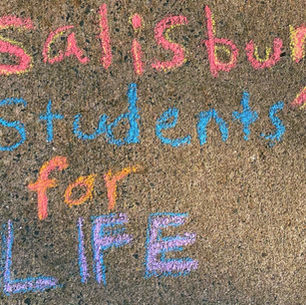 Salisbur
Students
for
LIFE